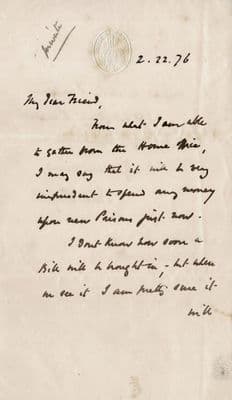 private
2.22.76
My dear Friend,
From what I am able
to gather from the Home Office,
I may say that it will be very
imprudent to spend any money
upon new Prisons just now.
I don't know how soon a
Bill will be brought in, - but when
we see it I am pretty sure it
will